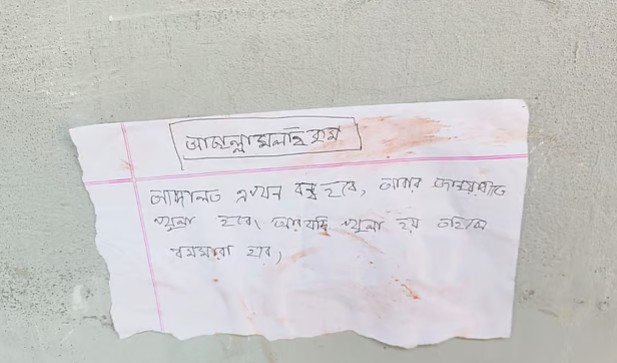 আচ্ছালামলাইকুম
আদালত এখন বন্ধ হবে, আবার জানুয়ারীতে
খুলা হবে। আর যদি খুলা হয় তাহলে
বমমারা হবে,